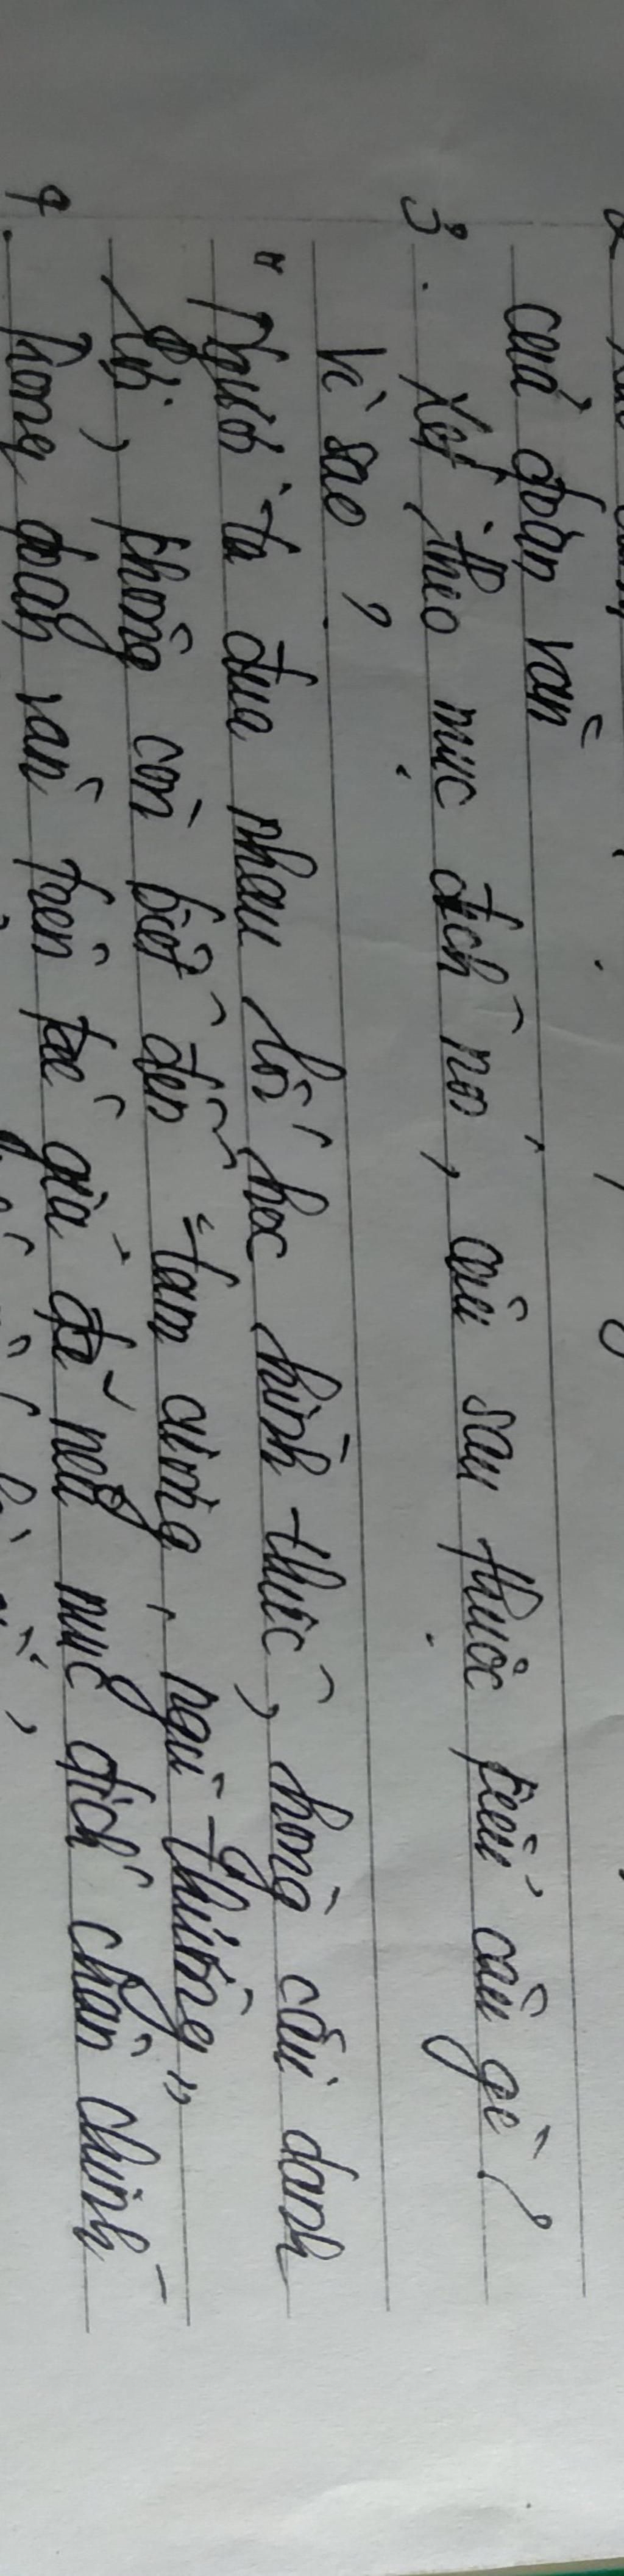 của đoạn văn
3. Xét theo mục đích nói, câu sau thuộc kiểu câu gì?
Vì sao?
"Người ta đua nhau lối học hình thức, hòng cầu danh
lợi, không còn biết đến "tam cương, ngũ thường"
4. Trong đoạn văn trên tác giả đã nêu mục đích chân chính